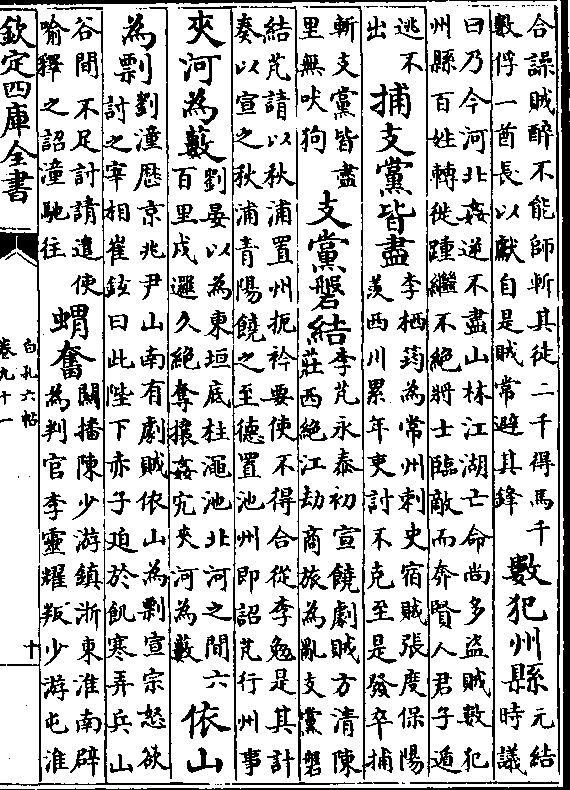 合譟賊醉不能師斬其徒二千得馬千
數俘一酋長以獻自是賊常避其鋒
數犯州縣
元結
時議
曰乃今河北姦逆不盡山林江湖亡命尚多盜賊數犯
州縣百姓轉徙踵繼不絕將士臨敵而奔賢人君子遁
逃不
出
捕支黨皆盡
李栖筠為常州刺史宿賊張度保陽
羡西川累年吏討不克至是發卒捕
斬支黨皆盡
里無吠狗
支黨磐結
李芃永泰初宣饒劇賊方清陳
莊西絕江劫商旅為亂支黨磐
結芃請以秋浦置州扼衿要使不得合從李勉是其計
奏以宣之秋浦青陽饒之至德置池州即詔芃行州事
夾河為藪
劉晏以為東垣底柱澠池北河之間六
百里戍邏久絕奪攘姦宄夾河為藪
依山
為剽
劉潼歷京兆尹山南有劇賊依山為剽宣宗怒欲
討之宰相崔鉉曰此陛下赤子迫於飢寒弄兵山
谷間不足計請遣使
喻釋之詔潼馳往
蝟奮
關播陳少游鎮浙東淮南辟
為判官李靈耀叛少游屯淮
欽定四庫全書
白孔六帖
卷九十一
十